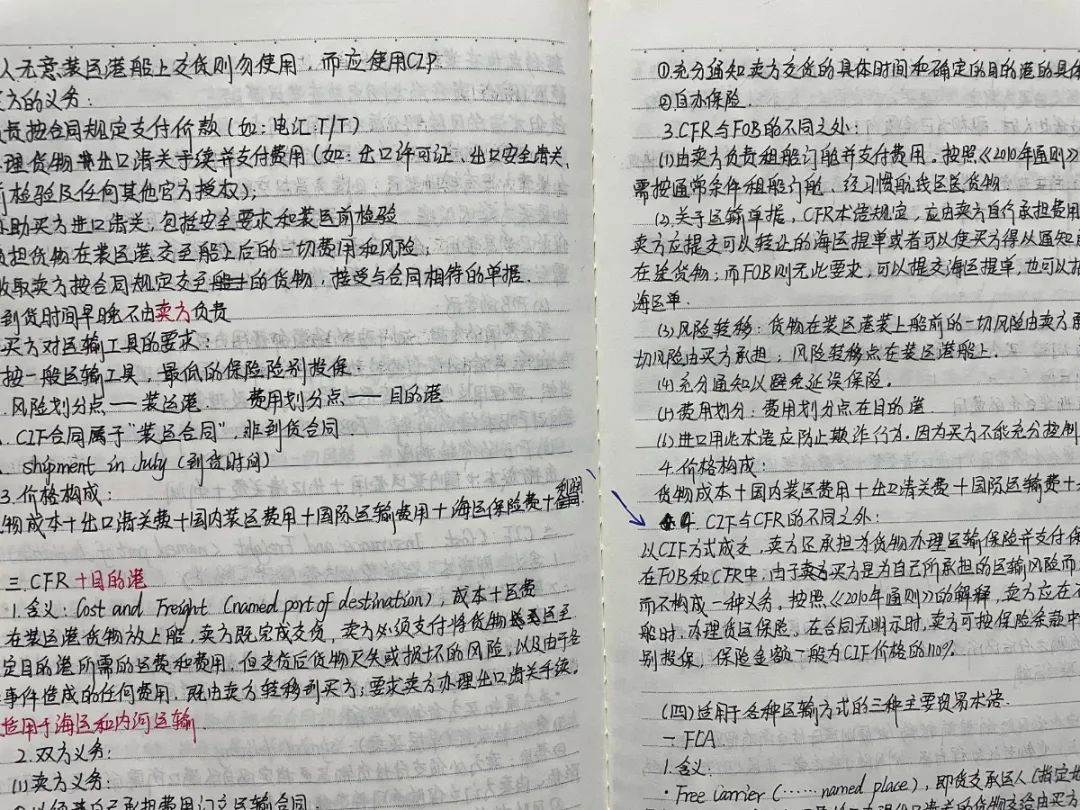 人无意装运港船上交货则勿使用，而应使用CIP.
方的义务：
责按合同规定支付价款（如：电汇：T/T）
理货物出口清关手续并支付费用（如：出口许可证、出口安全清关、
检验及任何其他官方授权）；
助买方进口清关，包括安全要求和装运前检验
担货物在装运港交至船上后的一切费用和风险；
收取卖方按合同规定交至的货物，接受与合同相符的单据.
到货时间早晚不由卖方负责
买方对运输工具的要求：
按一般运输工具，最低的保险险别投保.
风险划分点——装运港. 费用划分点——目的港
CIF合同属于"装运合同"，非到货合同.
shipment in July (到货时间)
3.价格构成：
物成本+出口清关费+国内装运费用+国际运输费用+海运保险费+利润
三.CFR +目的港
1.含义：Cost and Freight (named port of destination)，成本+运费
在装运港货物放上船，卖方既完成交货，卖方必须支付将货物运至
定目的港所需的运费和费用. 但交货后货物灭失或损坏的风险，以及由于各
事件造成的任何费用，既由卖方转移到买方；要求卖方办理出口清关手续。
适用于海运和内河运输
2.双方义务：
(1)卖方义务：
自己承担费用订立运输合同
①充分通知卖方交货的具体时间和确定的目的港的具体
②自办保险.
3.CFR与FOB的不同之处：
(1)由卖方负责租船订舱并支付费用。按照《2010年通则》
需按通常条件租船订舱，经习惯航线运送货物.
(2)关于运输单据，CFR术语规定，应由卖方自行承担费用
卖方应提交可以转让的海运提单或者可以使买方得以通知
在途货物；而FOB则无此要求，可以提交海运提单，也可以
海运单.
(3)风险转移：货物在装运港装上船前的一切风险由卖方
切风险由买方承担；风险转移点在装运港船上.
(4)充分通知以避免延误保险。
(5)费用划分：费用划分点在目的港
(6)进口用此术语应防止欺诈行为. 因为买方不能充分控制
4.价格构成：
货物成本+国内装运费用+出口清关费+国际运输费+
4.CIF与CFR的不同之外：
以CIF方式成交，卖方还承担为货物办理运输保险并支付保
在FOB和CFR中，由于买方是为自己所承担的运输风险而
而不构成一种义务。按照《2010年通则》的解释，卖方应在不
船时，办理货运保险，在合同无明示时，卖方可按保险条款中
别投保，保险金额一般为CIF价格的110%.
(四)适用于各种运输方式的三种主要贸易术语.
一.FCA.
1.含义：
·Free Carrier (……named place)，即货交承运人(指定